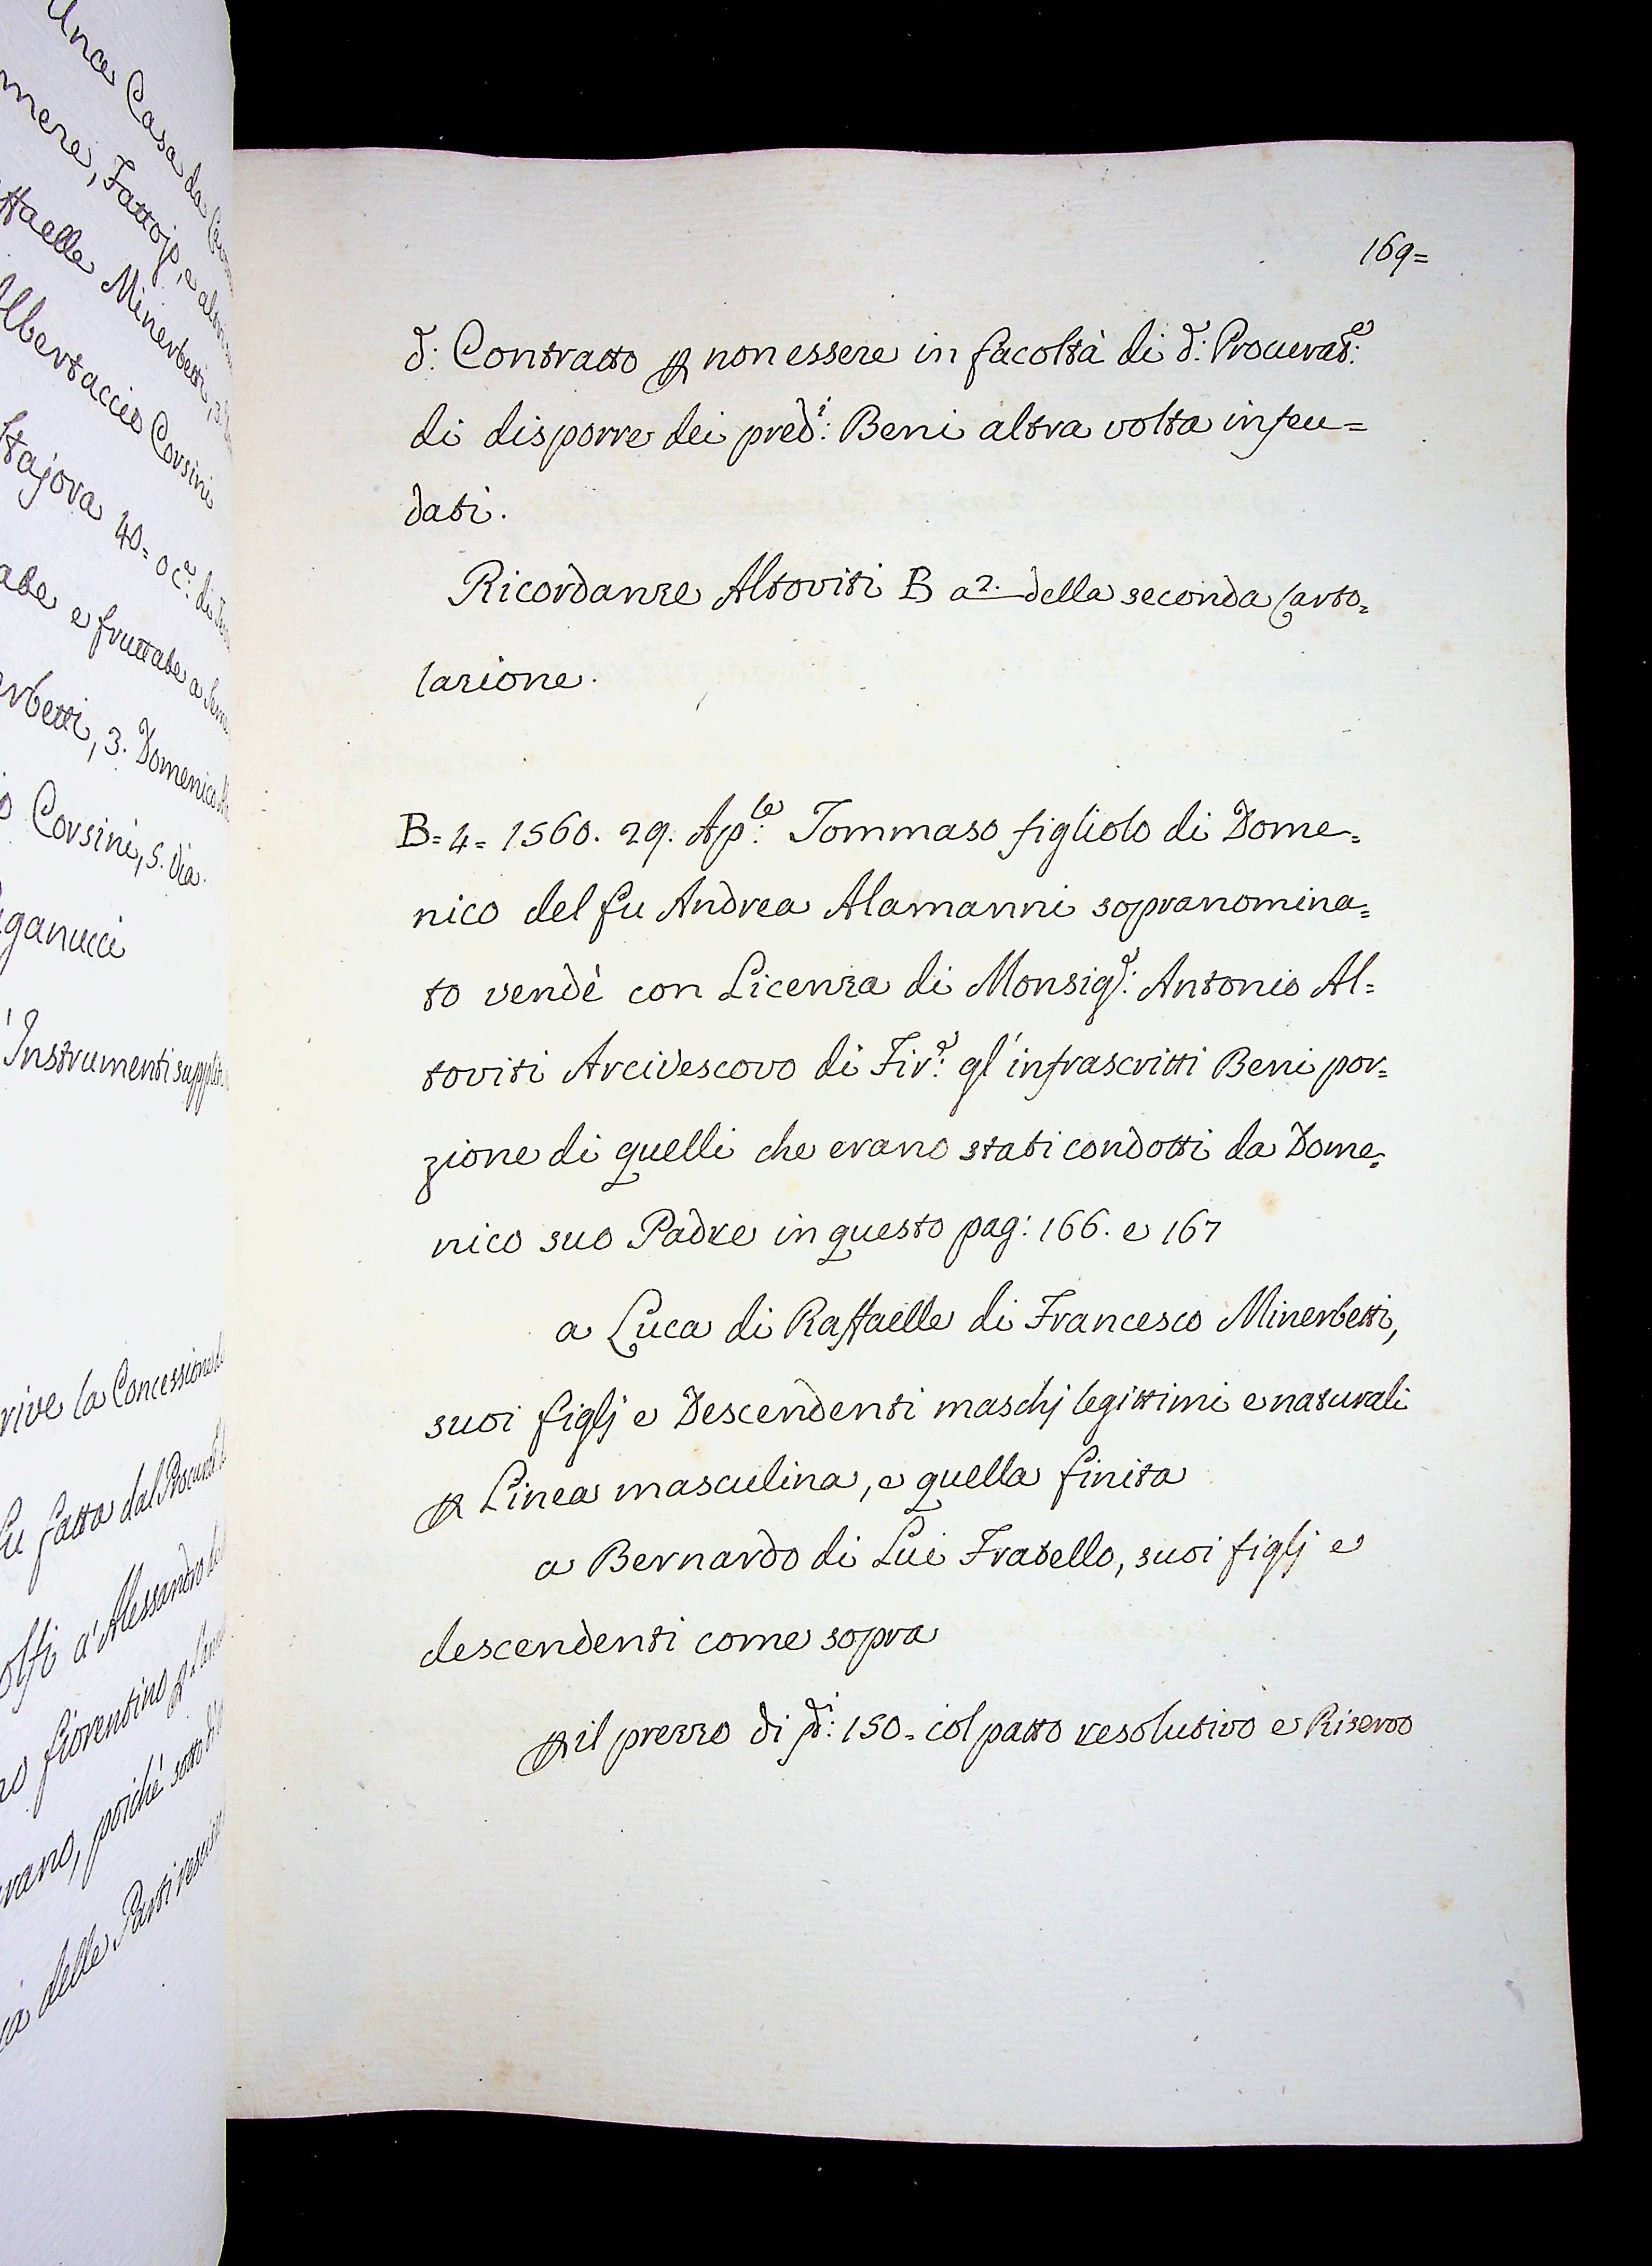 Una Casa da
mere, Fattojo, e
ffaelle Minerbetti, 3.
Albertaccio Corsini
stajora 40= oc.ª di
ate e fruttate a
erbetti, 3. Domenico
o Corsini, 5. Via.
ganucci
Instrumenti
rive la Concessione
fu fatta dal
olfi a' Alessandro
no fiorentino p
vano, poiché sotto
ia delle Parti
169=
d: Contratto p non essere in facoltà di d: Procurat:e
di disporre dei pred:i Beni altra volta infeu=
dati.
Ricordanze Altoviti B a 2. della seconda Carto=
lazione.
B=4= 1560. 29. Ap:le Tommaso figliolo di Dome=
nico del fu Andrea Alamanni sopranomina=
to vendè con Licenza di Monsig:r Antonio Al=
toviti Arcivescovo di Fir:e gl'infrascritti Beni por=
zione di quelli che erano stati condotti da Dome=
nico suo Padre in questo pag: 166. e 167
a Luca di Raffaelle di Francesco Minerbetti,
suoi figlj e Descendenti maschj legittimi e naturali
p Linea masculina, e quella finita
a Bernardo di Lui Fratello, suoi figlj e
descendenti come sopra
p il prezzo di 150= col patto resolutivo e Riservo